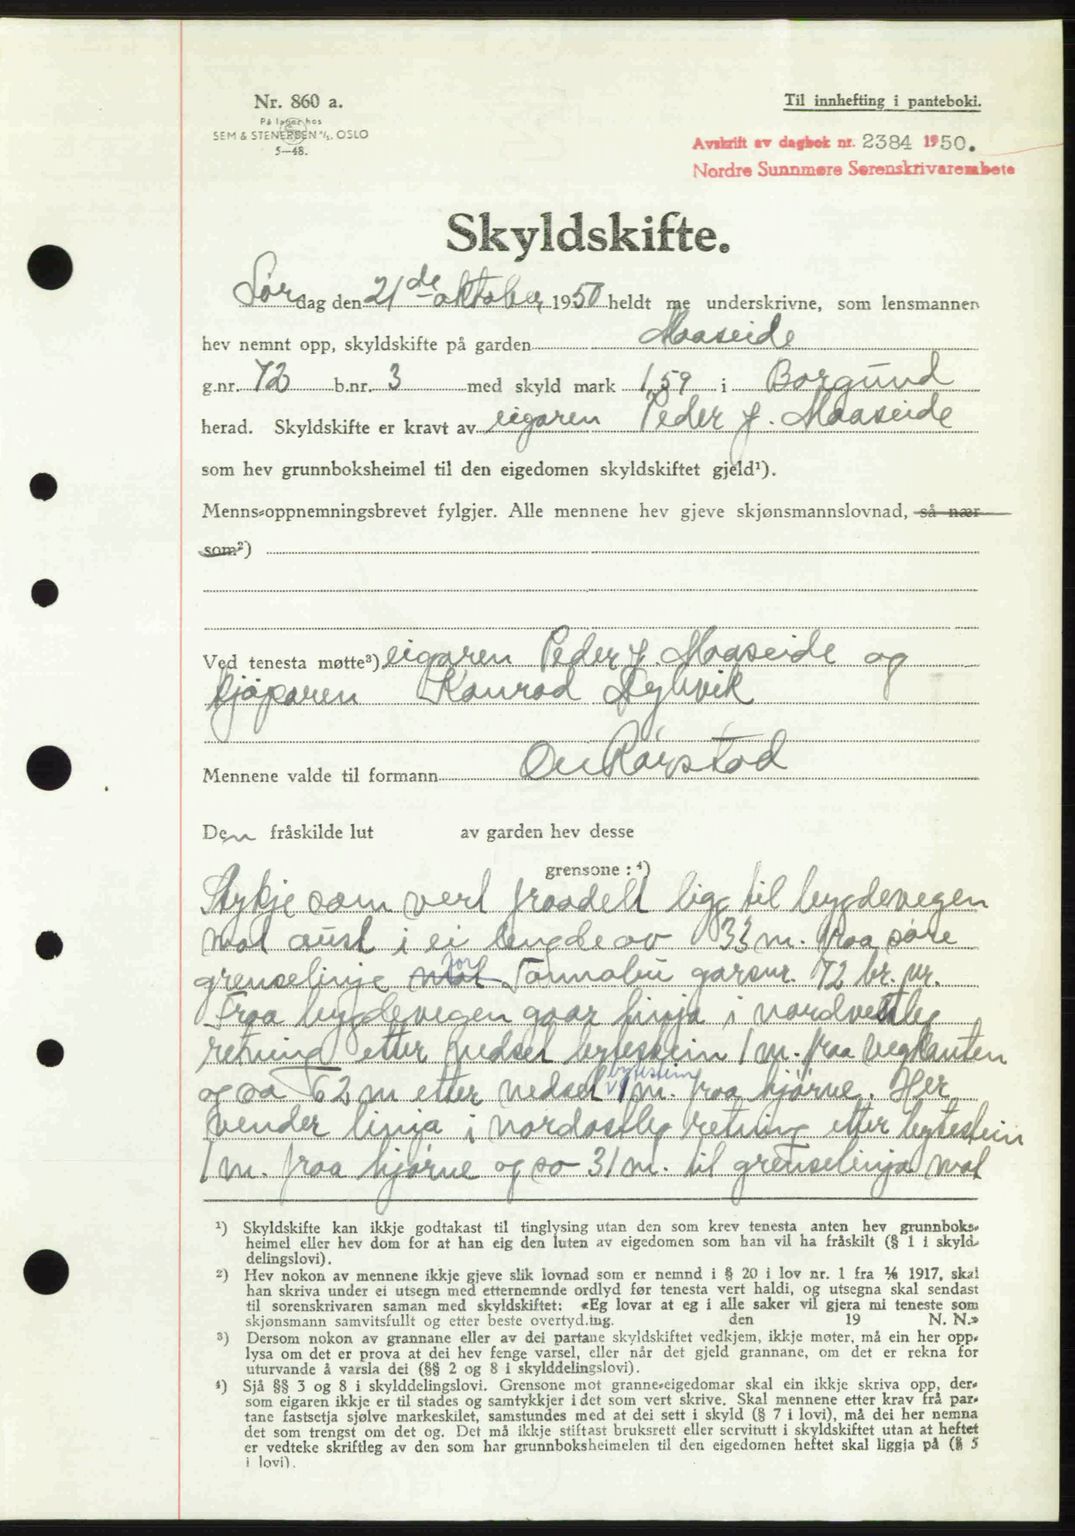 Nr. 860 a.
På lager hos
SEM & STENERSEN A/S. OSLO
5—48.
Til innhefting i panteboki.
Avskrift av dagbok nr. 2384 1950.
Nordre Sunnmøre Sorenskrivarembete
Skyldskifte.
Lørdag den 21de oktober 1950 heldt me underskrivne, som lensmannen
hev nemnt opp, skyldskifte på garden Maaseide
g.nr. 72 b.nr. 3 med skyld mark 1,59 i Borgund
herad. Skyldskifte er kravt av eigaren Peder J. Maaseide
som hev grunnboksheimel til den eigedomen skyldskiftet gjeld¹).
Menns-oppnemningsbrevet fylgjer. Alle mennene hev gjeve skjønsmannslovnad, så nær
som²)
Ved tenesta møtte³) eigaren Peder J. Maaseide og
kjøparen Konrad
Mennene valde til formann
Den fråskilde lut av garden hev desse
grensone: ⁴)
Stykje som vert fraadelt ligg til bygdevegen
mot aust i ei lengde av 33 m. fraa søre
grenselinje mot for Tannabu garsnr. 72 br. nr.
Fraa bygdevegen gaar linja i nordvestleg
retning etter nedset bytestein 1 m. fraa vegkanten
og so 62 m etter nedset bytestein 1 m. fraa hjørne. Her
vender linja i nordostleg retning etter bytestein
1 m. fraa hjørne og so 31 m. til grenselinja mot
¹) Skyldskifte kan ikkje godtakast til tinglysing utan den som krev tenesta anten hev grunnboks-
heimel eller hev dom for at han eig den luten av eigedomen som han vil ha fråskilt (§ 1 i skyld-
delingslovi).
²) Hev nokon av mennene ikkje gjeve slik lovnad som er nemnd i § 20 i lov nr. 1 fra 1/6 1917, skal
han skriva under ei utsegn med etternemnde ordlyd før tenesta vert haldi, og utsegna skal sendast
til sorenskrivaren saman med skyldskiftet: «Eg lovar at eg i alle saker vil gjera mi teneste som
skjønsmann samvitsfullt og etter beste overtyding. den 19 N. N.»
³) Dersom nokon av grannane eller av dei partane skyldskiftet vedkjem, ikkje møter, må ein her opp-
lysa om det er prova at dei hev fenge varsel, eller når det gjeld grannane, om det er rekna for
uturvande å varsla dei (§§ 2 og 8 i skylddelingslovi).
⁴) Sjå §§ 3 og 8 i skylddelingslovi. Grensone mot granne-eigedomar skal ein ikkje skriva opp, der-
som eigaren ikkje er til stades og samtykkjer i det som vert skrive. Skal mennene etter krav frå par-
tane fastsetja sjølve markeskilet, samstundes med at dei sett i skyld (§ 7 i lovi), må dei her nemna
det som trengst om det og. Det må ikkje stiftast bruksrett eller servitutt i skyldskiftet utan at heftet
er vedteke skriftleg av den som har grunnboksheimelen til den eigedomen heftet skal liggja på (§ 5
i lovi).